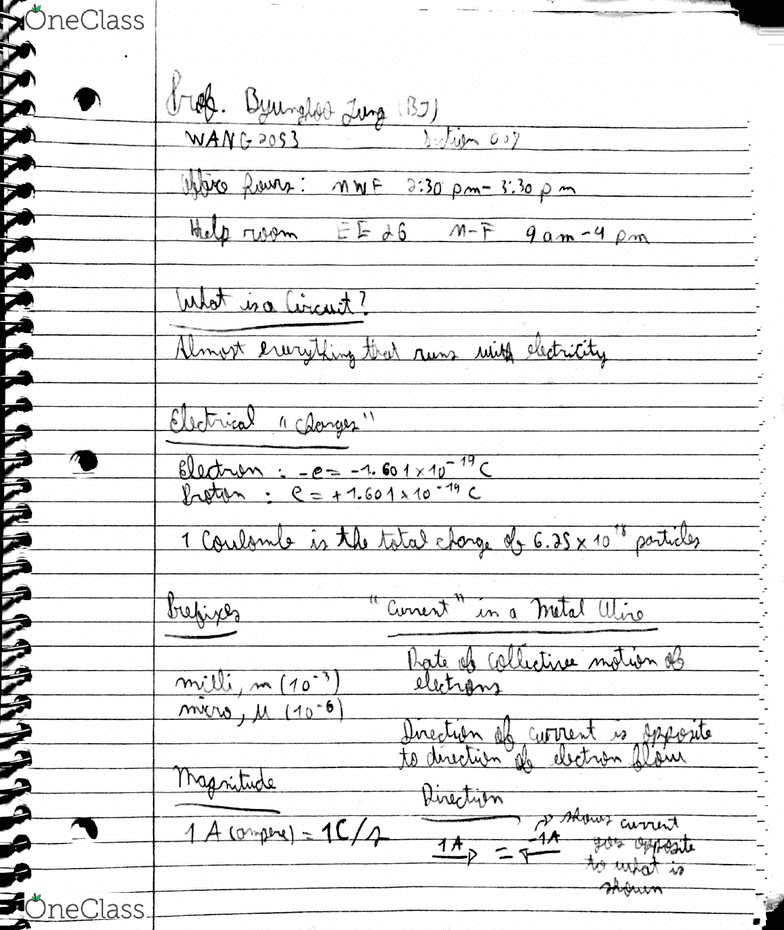 OneClass
Prof. Byunghoo Jung (BJ)
WANG 2053 Section 007
Office hours: MWF 2:30 pm - 3:30 pm
Help room EE 26 M-F 9 am - 4 pm
What is a Circuit?
Almost everything that runs with electricity
Electrical "charges"
Electron : -e = -1.601 x 10^-19 C
Proton : e = +1.601 x 10^-19 C
1 Coulomb is the total charge of 6.25 x 10^18 particles
Prefixes
milli, m (10^-3)
micro, μ (10^-6)
"Current" in a Metal Wire
Rate of collective motion of
electrons
Direction of current is opposite
to direction of electron flow
Magnitude
1 A (ampere) = 1C/s
Direction
1A → = -1A ←
→ shows current
goes opposite
to what is
shown
OneClass